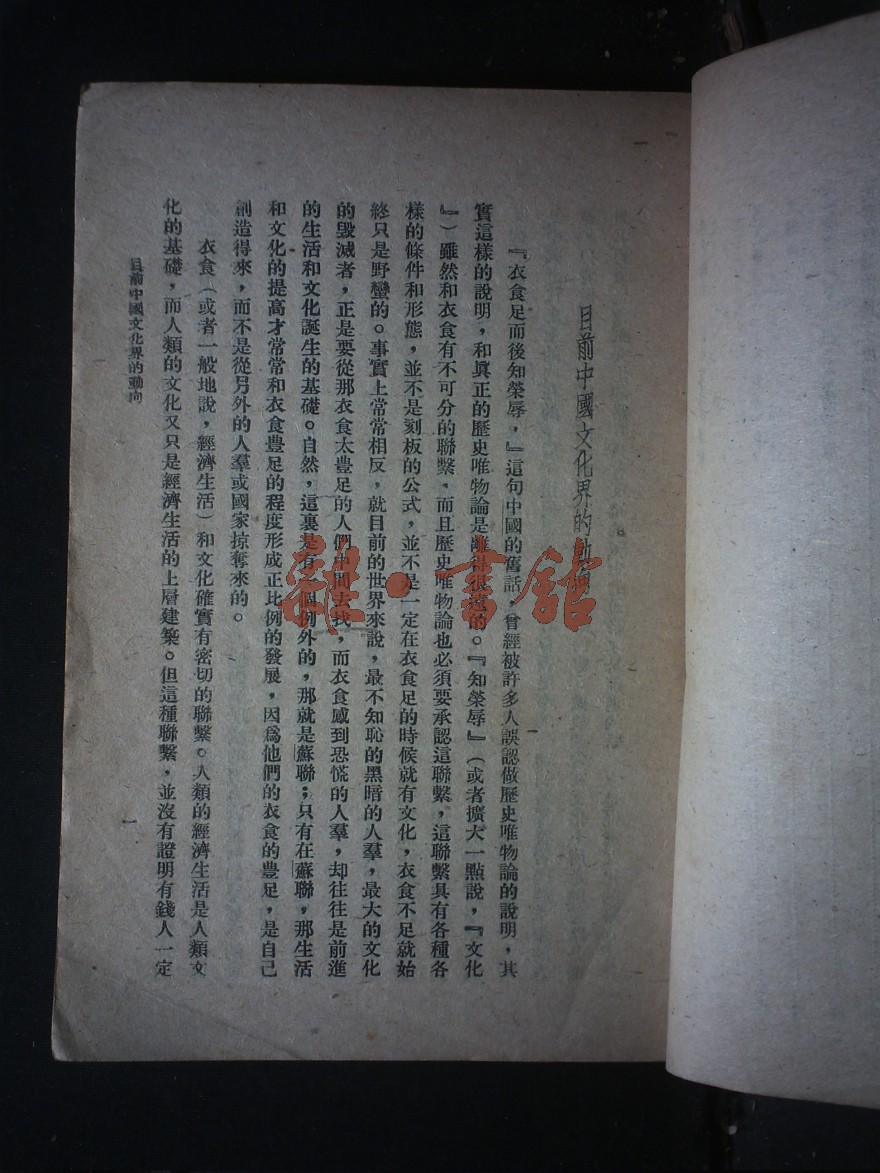 目前中國文化界的動向
『衣食足而後知榮辱，』這句中國的舊話，曾經被許多人誤認做歷史唯物論的說明，其
實這樣的說明，和眞正的歷史唯物論是離得很遠的。『知榮辱』（或者擴大一點說，『文化
』）雖然和衣食有不可分的聯繫，而且歷史唯物論也必須要承認這聯繫，這聯繫具有各種各
樣的條件和形態，並不是刻板的公式，並不是一定在衣食足的時候就有文化，衣食不足就始
終只是野蠻的。事實上常常相反，就目前的世界來說，最不知恥的黑暗的人羣，最大的文化
的毀滅者，正是要從那衣食太豊足的人們中間去找，而衣食感到恐慌的人羣，却往往是前進
的生活和文化誕生的基礎。自然，這裏是有一個例外的，那就是蘇聯；只有在蘇聯，那生活
和文化的提高才常常和衣食豊足的程度形成正比例的發展，因爲他們的衣食的豊足，是自己
創造得來，而不是從另外的人羣或國家掠奪來的。
衣食（或者一般地說，經濟生活）和文化確實有密切的聯繫。人類的經濟生活是人類文
化的基礎，而人類的文化又只是經濟生活的上層建築。但這種聯繫，並沒有證明有錢人一定
目前中國文化界的動向
一
雜·書館